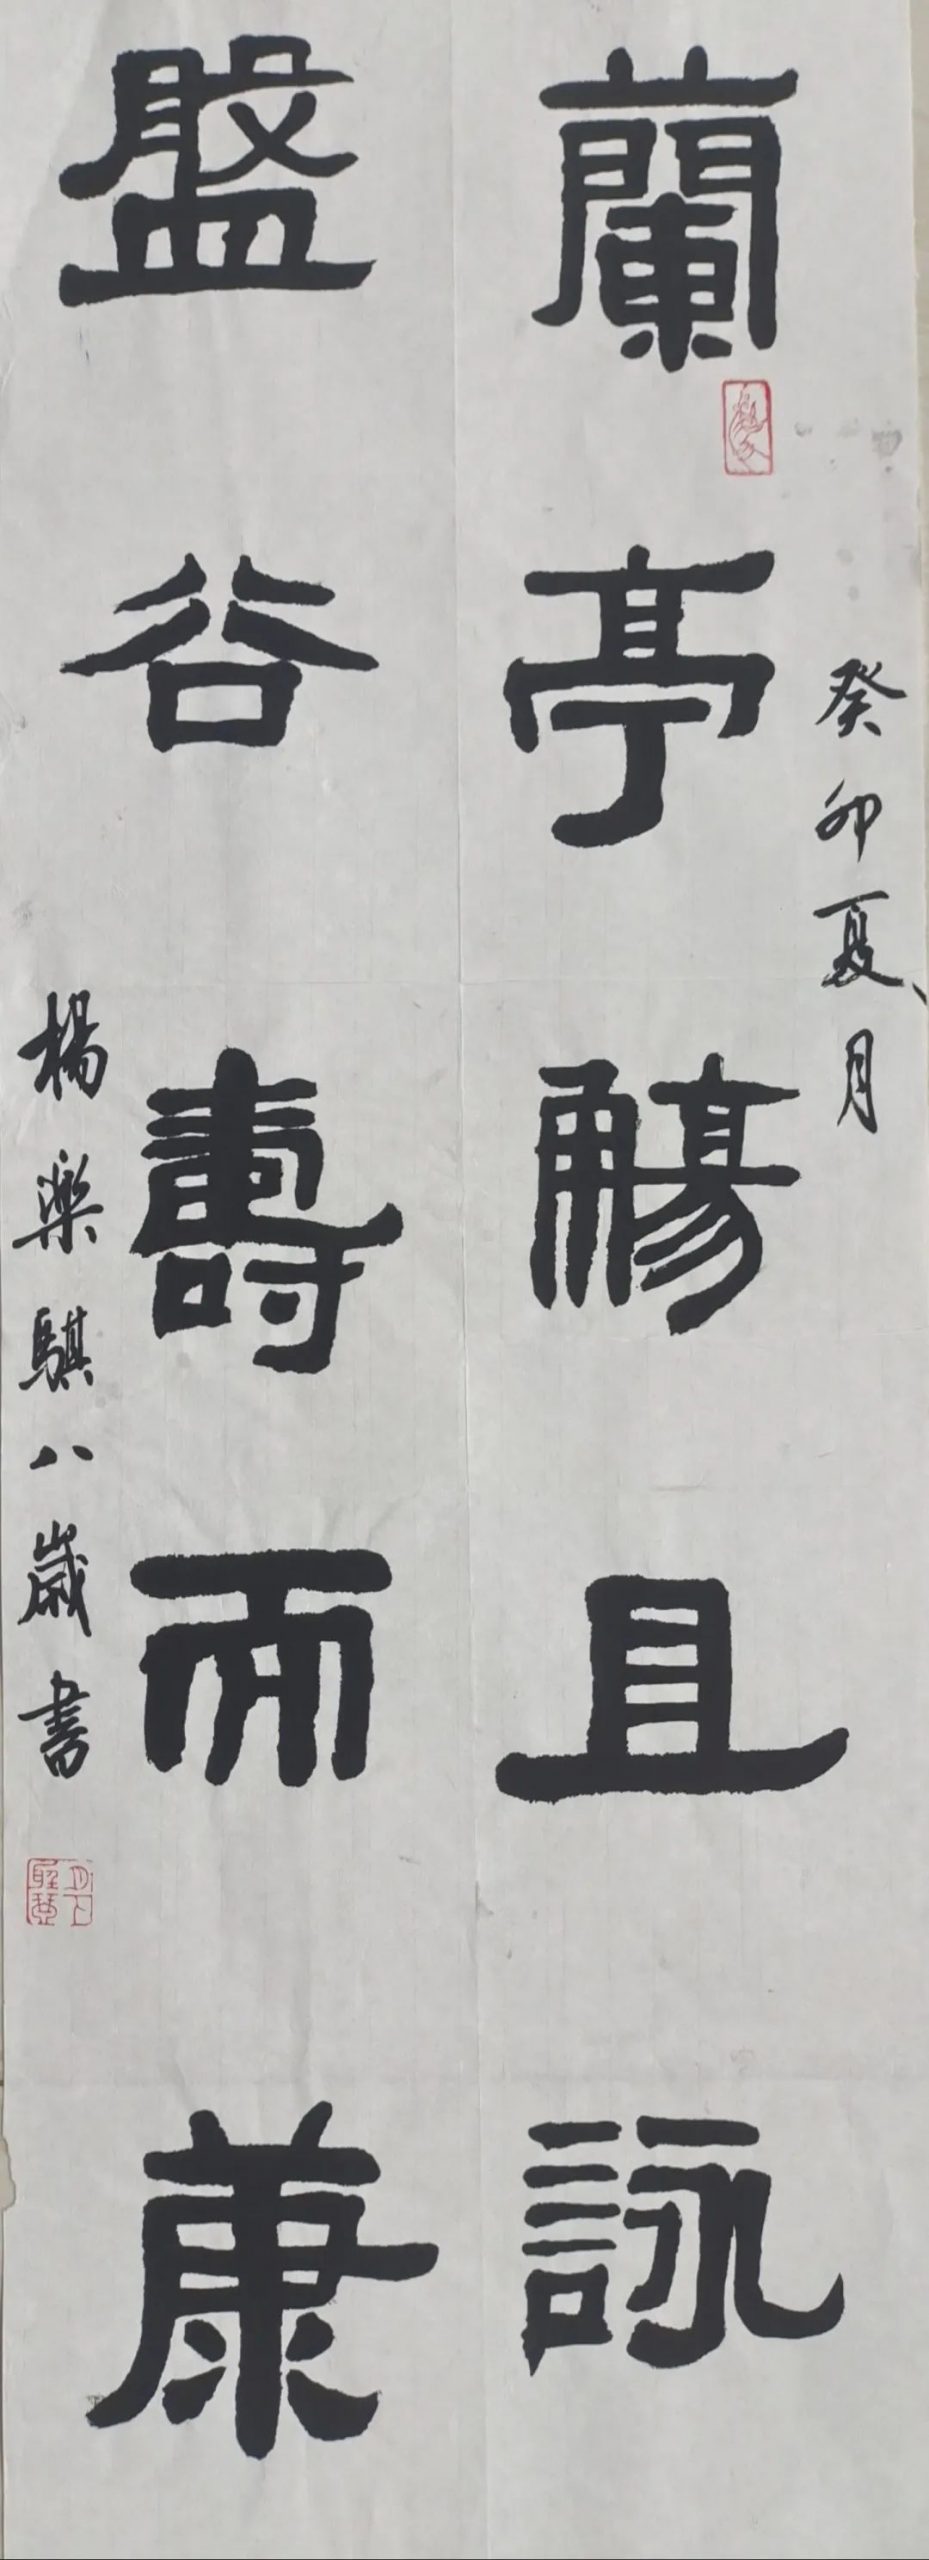 癸卯夏月
蘭亭觴且詠
盤谷壽而康
楊樂騏八歲書